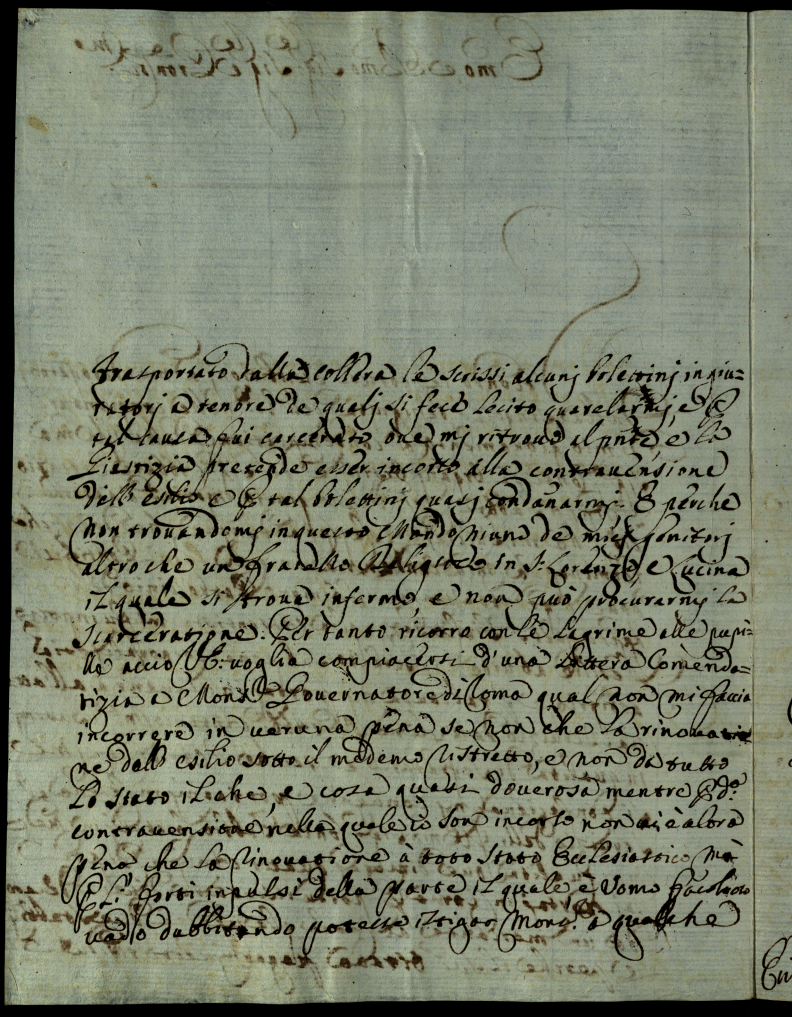 Trasportato dalla collera le scrissi alcunj bolettinj ingiu=
ratorj a tenore de qualj si fece lecito querelarmj, e
tal causa fui carcerato oue mj ritrouo al pnte, e la
Giustizia pretende esser incorso alla contrauensione
dell'esilio e tal bolettinj quasj condanarmj. E perche
non trouandomj in questo Mondo niuno de miej genitorj
altro che un fratello Religioso in S. Lorenzo, e Lucina
il quale si troua infermo, e non può procurarmj la
scarceratione. Per tanto ricorro con le lagrime alle pupil=
le accio V: E: voglia compiacersi d'una lettera Comenda=
tizia a Mons.r Gouernatore di Roma qual non mi faccia
incorrere in ueruna pena se non che la rinouatio
ne dell'esilio sotto il medemo ristretto, e non da tutto
lo stato il che, e cosa quasi douerosa mentre
contrauensione nella quale io son incorso non ui è altra
pena che la rinouatione à toto stato Ecclesiastico mà
forti inpulsi della parte il quale è uomo facoltoso
uado dubbitando potesse istigar Mons.r a qualche